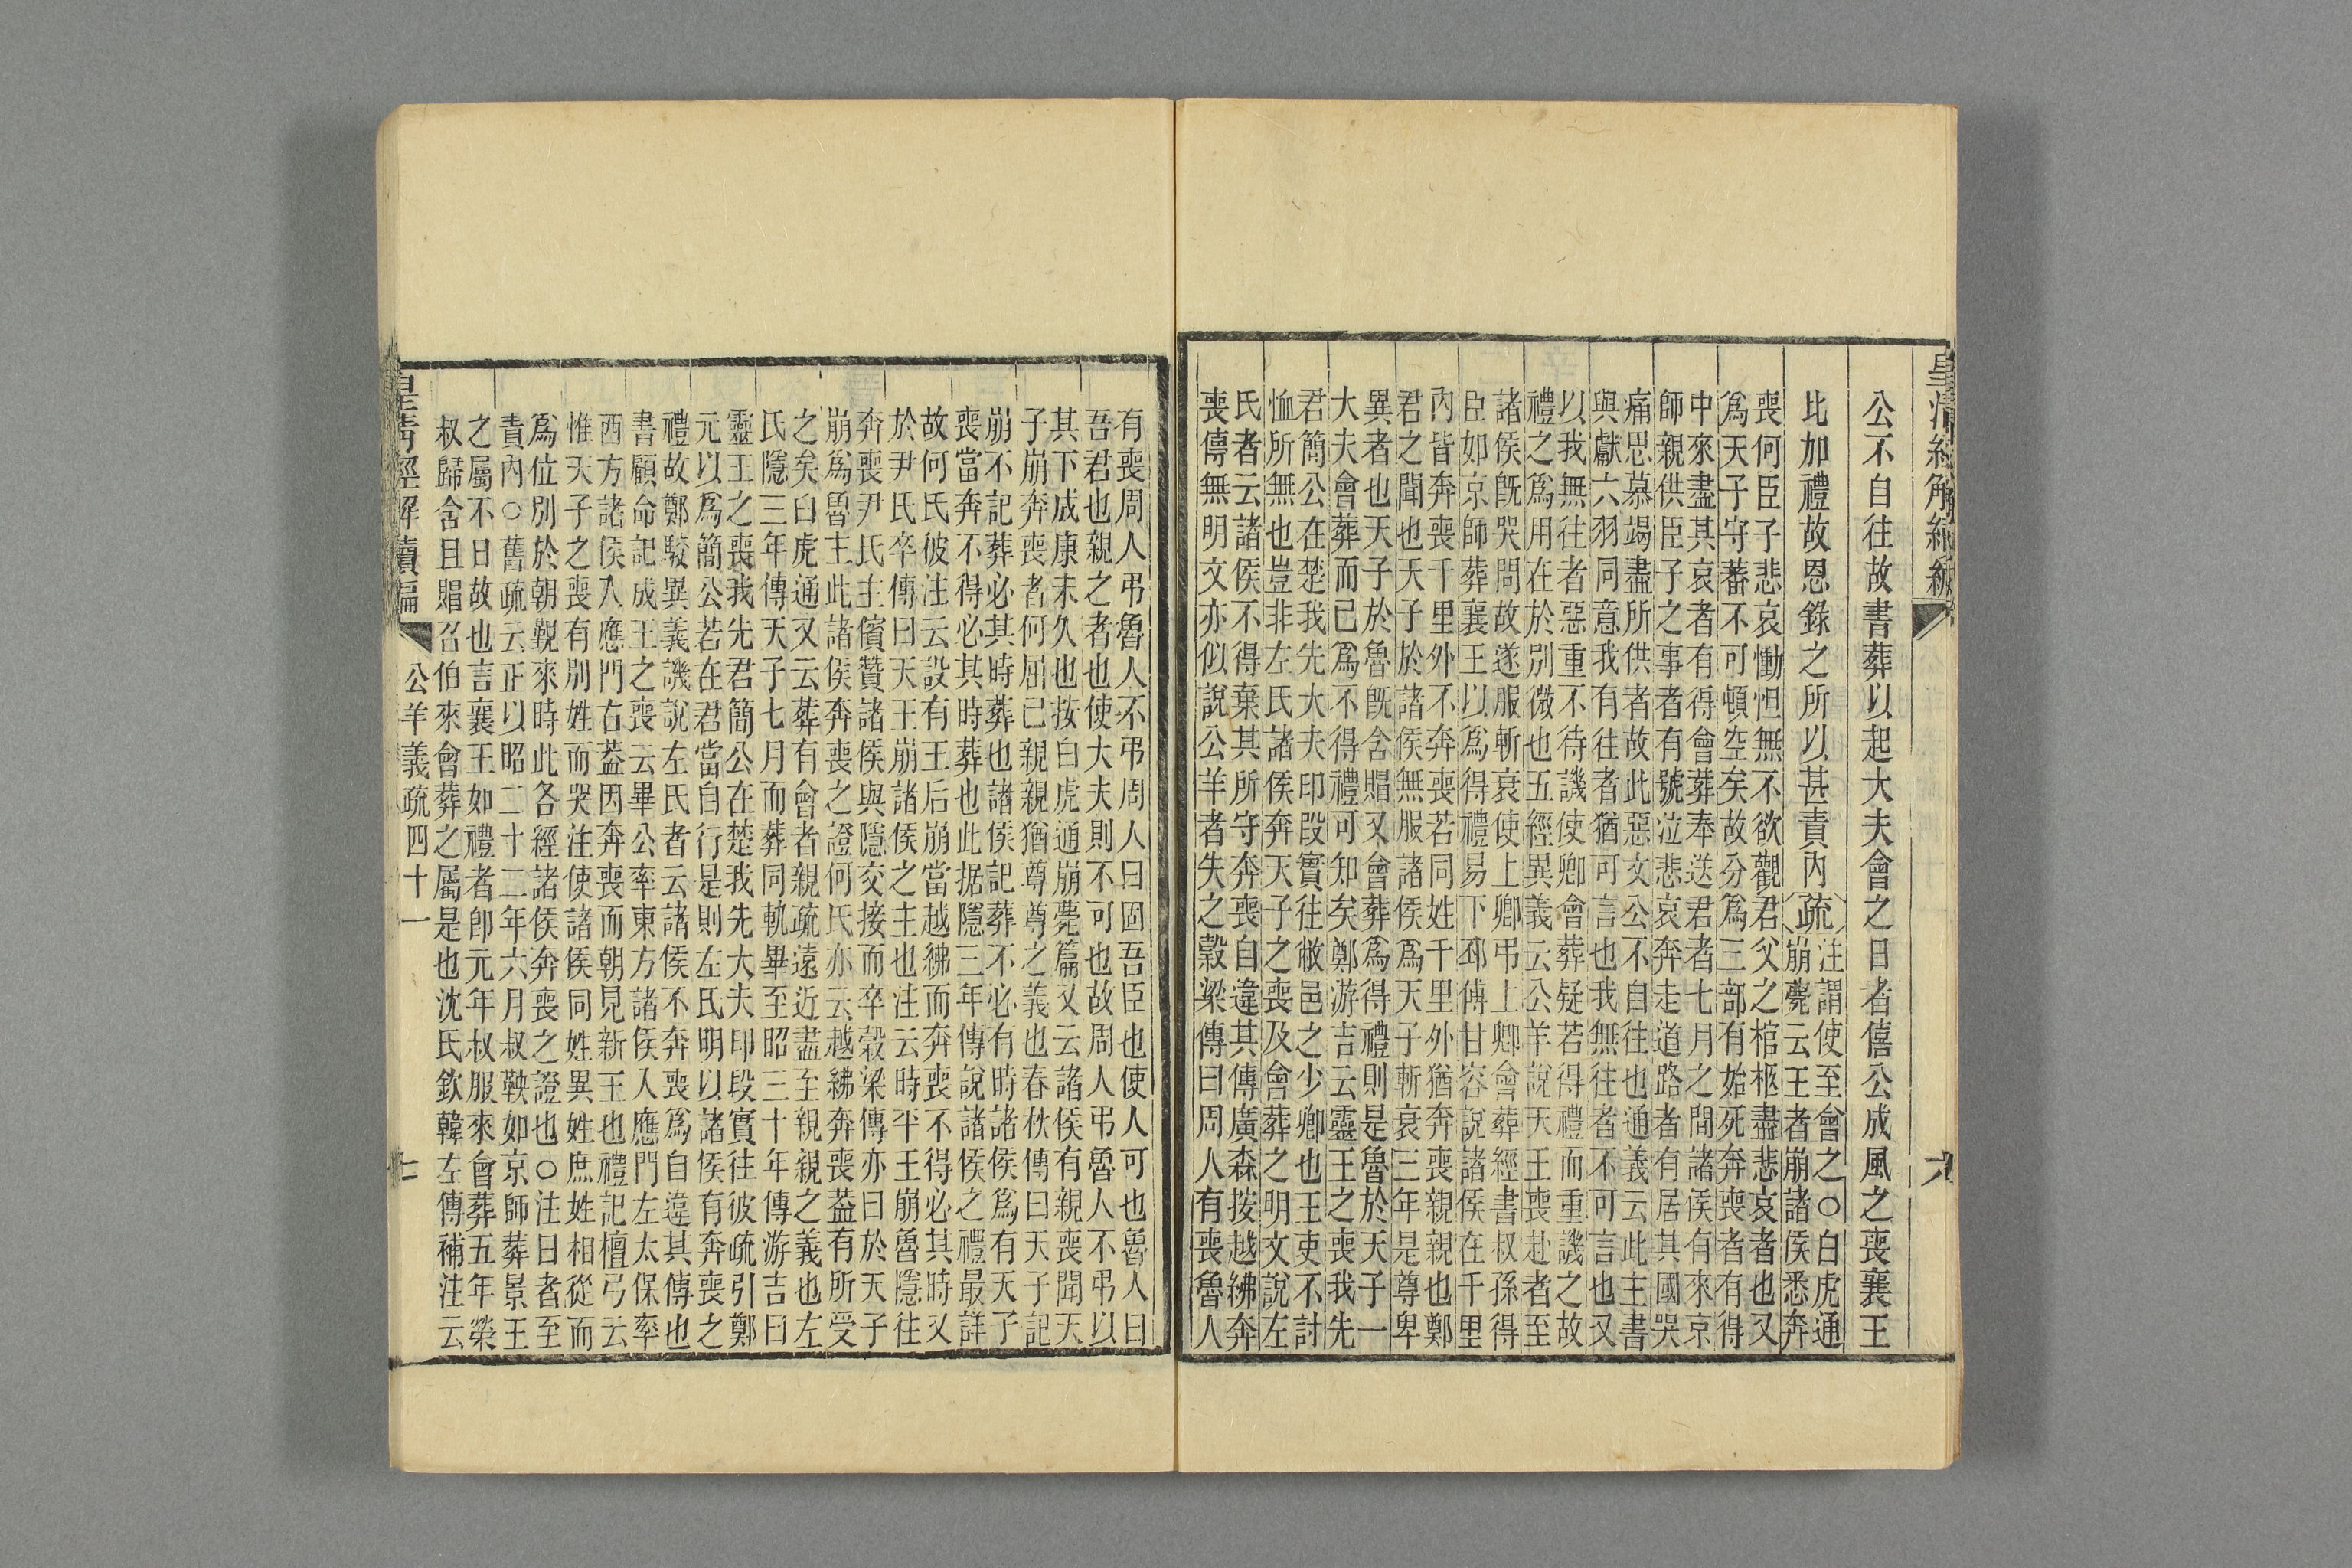 皇清經解續編
六
公不自往故書葬以起大夫會之日者僖公成風之喪襄王
比加禮故恩錄之所以甚責內
疏
注謂使至會之○白虎通
崩薨云王者崩諸侯悉奔
喪何臣子悲哀慟怛無不欲觀君父之棺柩盡悲哀者也又
爲天子守蕃不可頓空矣故分爲三部有始死奔喪者有得
中來盡其哀者有得會葬奉送君者七月之間諸侯有來京
師親供臣子之事者有號泣悲哀奔走道路者有居其國哭
痛思慕竭盡所供者故此惡文公不自往也通義云此主書
與獻六羽同意我有往者猶可言也我無往者不可言也又
以我無往者惡重不待譏使卿會葬疑若得禮而重譏之故
禮之爲用在於別微也五經異義云公羊說天王喪赴者至
諸侯旣哭問故遂服斬衰使上卿弔上卿會葬經書叔孫得
臣如京師葬襄王以爲得禮易下邳傅甘容說諸侯在千里
內皆奔喪千里外不奔喪若同姓千里外猶奔喪親親也鄭
君之聞也天子於諸侯無服諸侯爲天子斬衰三年是尊卑
異者也天子於魯旣含賵又會葬爲得禮則是魯於天子一
大夫會葬而已爲不得禮可知矣鄭游吉云靈王之喪我先
君簡公在楚我先大夫印段實往敝邑之少卿也王吏不討
恤所無也豈非左氏諸侯奔天子之喪及會葬之明文說左
氏者云諸侯不得棄其所守奔喪自違其傳廣森按越紼奔
喪傳無明文亦似說公羊者失之穀梁傳曰周人有喪魯人
有喪周人弔魯人不弔周人曰固吾臣也使人可也魯人曰
吾君也親之者也使大夫則不可也故周人弔魯人不弔以
其下成康未久也按白虎通崩薨篇又云諸侯有親喪聞天
子崩奔喪者何屈已親親猶尊尊之義也春秋傳曰天子記
崩不記葬必其時葬也諸侯記葬不必有時諸侯爲有天子
喪當奔不得必其時葬也此据隱三年傳說諸侯之禮最詳
故何氏彼注云設有王后崩當越紼而奔喪不得必其時又
於尹氏卒傳曰天王崩諸侯之主也注云時平王崩魯隱往
奔喪尹氏主儐贊諸侯與隱交接而卒穀梁傳亦曰於天子
崩爲魯主此諸侯奔喪之證何氏亦云越紼奔喪葢有所受
之矣白虎通又云葬有會者親疏遠近盡至親親之義也左
氏隱三年傳天子七月而葬同軌畢至昭三十年傳游吉曰
靈王之喪我先君簡公在楚我先大夫印段實往彼疏引鄭
元以爲簡公若在君當自行是則左氏明以諸侯有奔喪之
禮故鄭駮異義譏說左氏者云諸侯不奔喪爲自違其傳也
書顧命記成王之喪云畢公率東方諸侯入應門左太保率
西方諸侯入應門右葢因奔喪而朝見新王也禮記檀弓云
惟天子之喪有別姓而哭注使諸侯同姓異姓庶姓相從而
爲位別於朝覲來時此各經諸侯奔喪之證也○注日者至
責內○舊疏云正以昭二十二年六月叔鞅如京師葬景王
之屬不日故也言襄王如禮者卽元年叔服來會葬五年榮
叔歸含且賵召伯來會葬之屬是也沈氏欽韓左傳補注云
皇淸經解續編
公羊義疏四十一
七